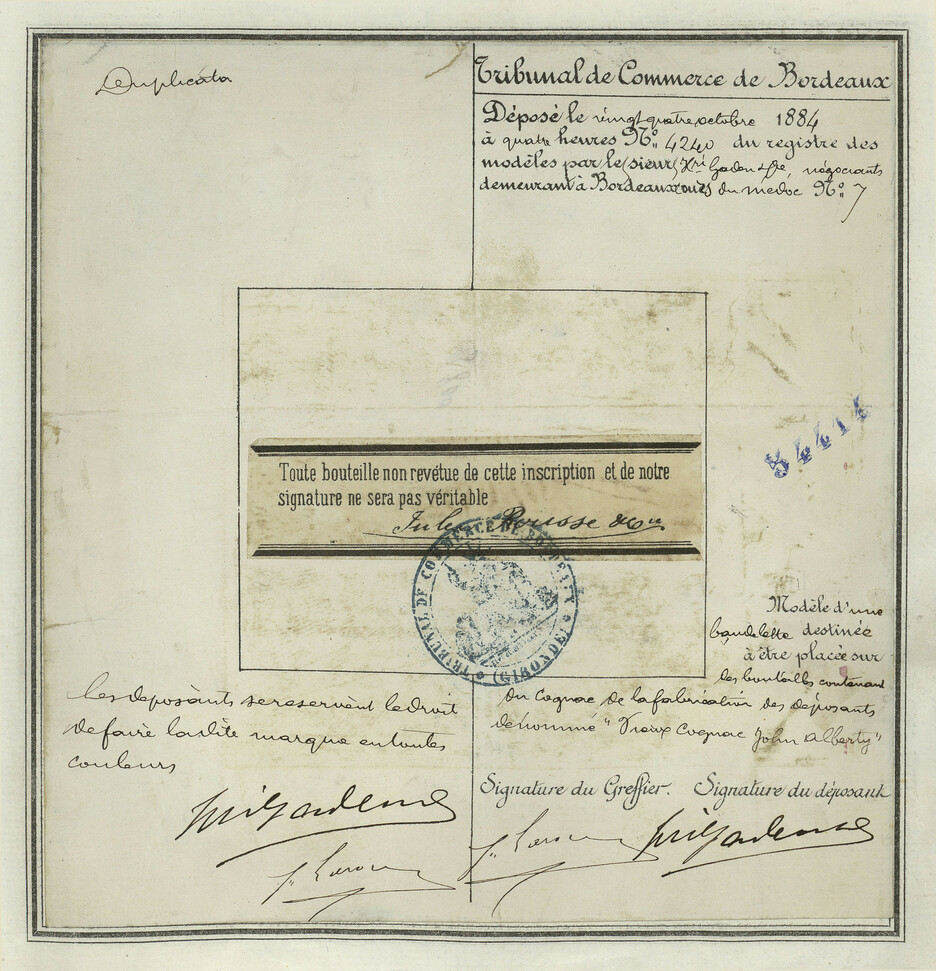 Duplicata
Tribunal de Commerce de Bordeaux
Déposé le vingt quatre octobre 1884
à quatre heures Nº 4240 du registre des
modèles par le (sieur) Hri Gaden & Cie, négociants
demeurant à Bordeaux du medoc Nº 7
54414
Toute bouteille non revétue de cette inscription et de notre
signature ne sera pas véritable
Jules & Cie
TRIBUNAL DE COMMERCE DE BORDEAUX (GIRONDE)
Modèle d'une
bandelette destinée
à être placée sur
les bouteilles contenant
du Cognac de la fabrication des déposants
dénommé "Vieux Cognac John Alberty"
les déposants se reservent le droit
de faire la dite marque en toutes
couleurs
Signature du Greffier. Signature du déposant